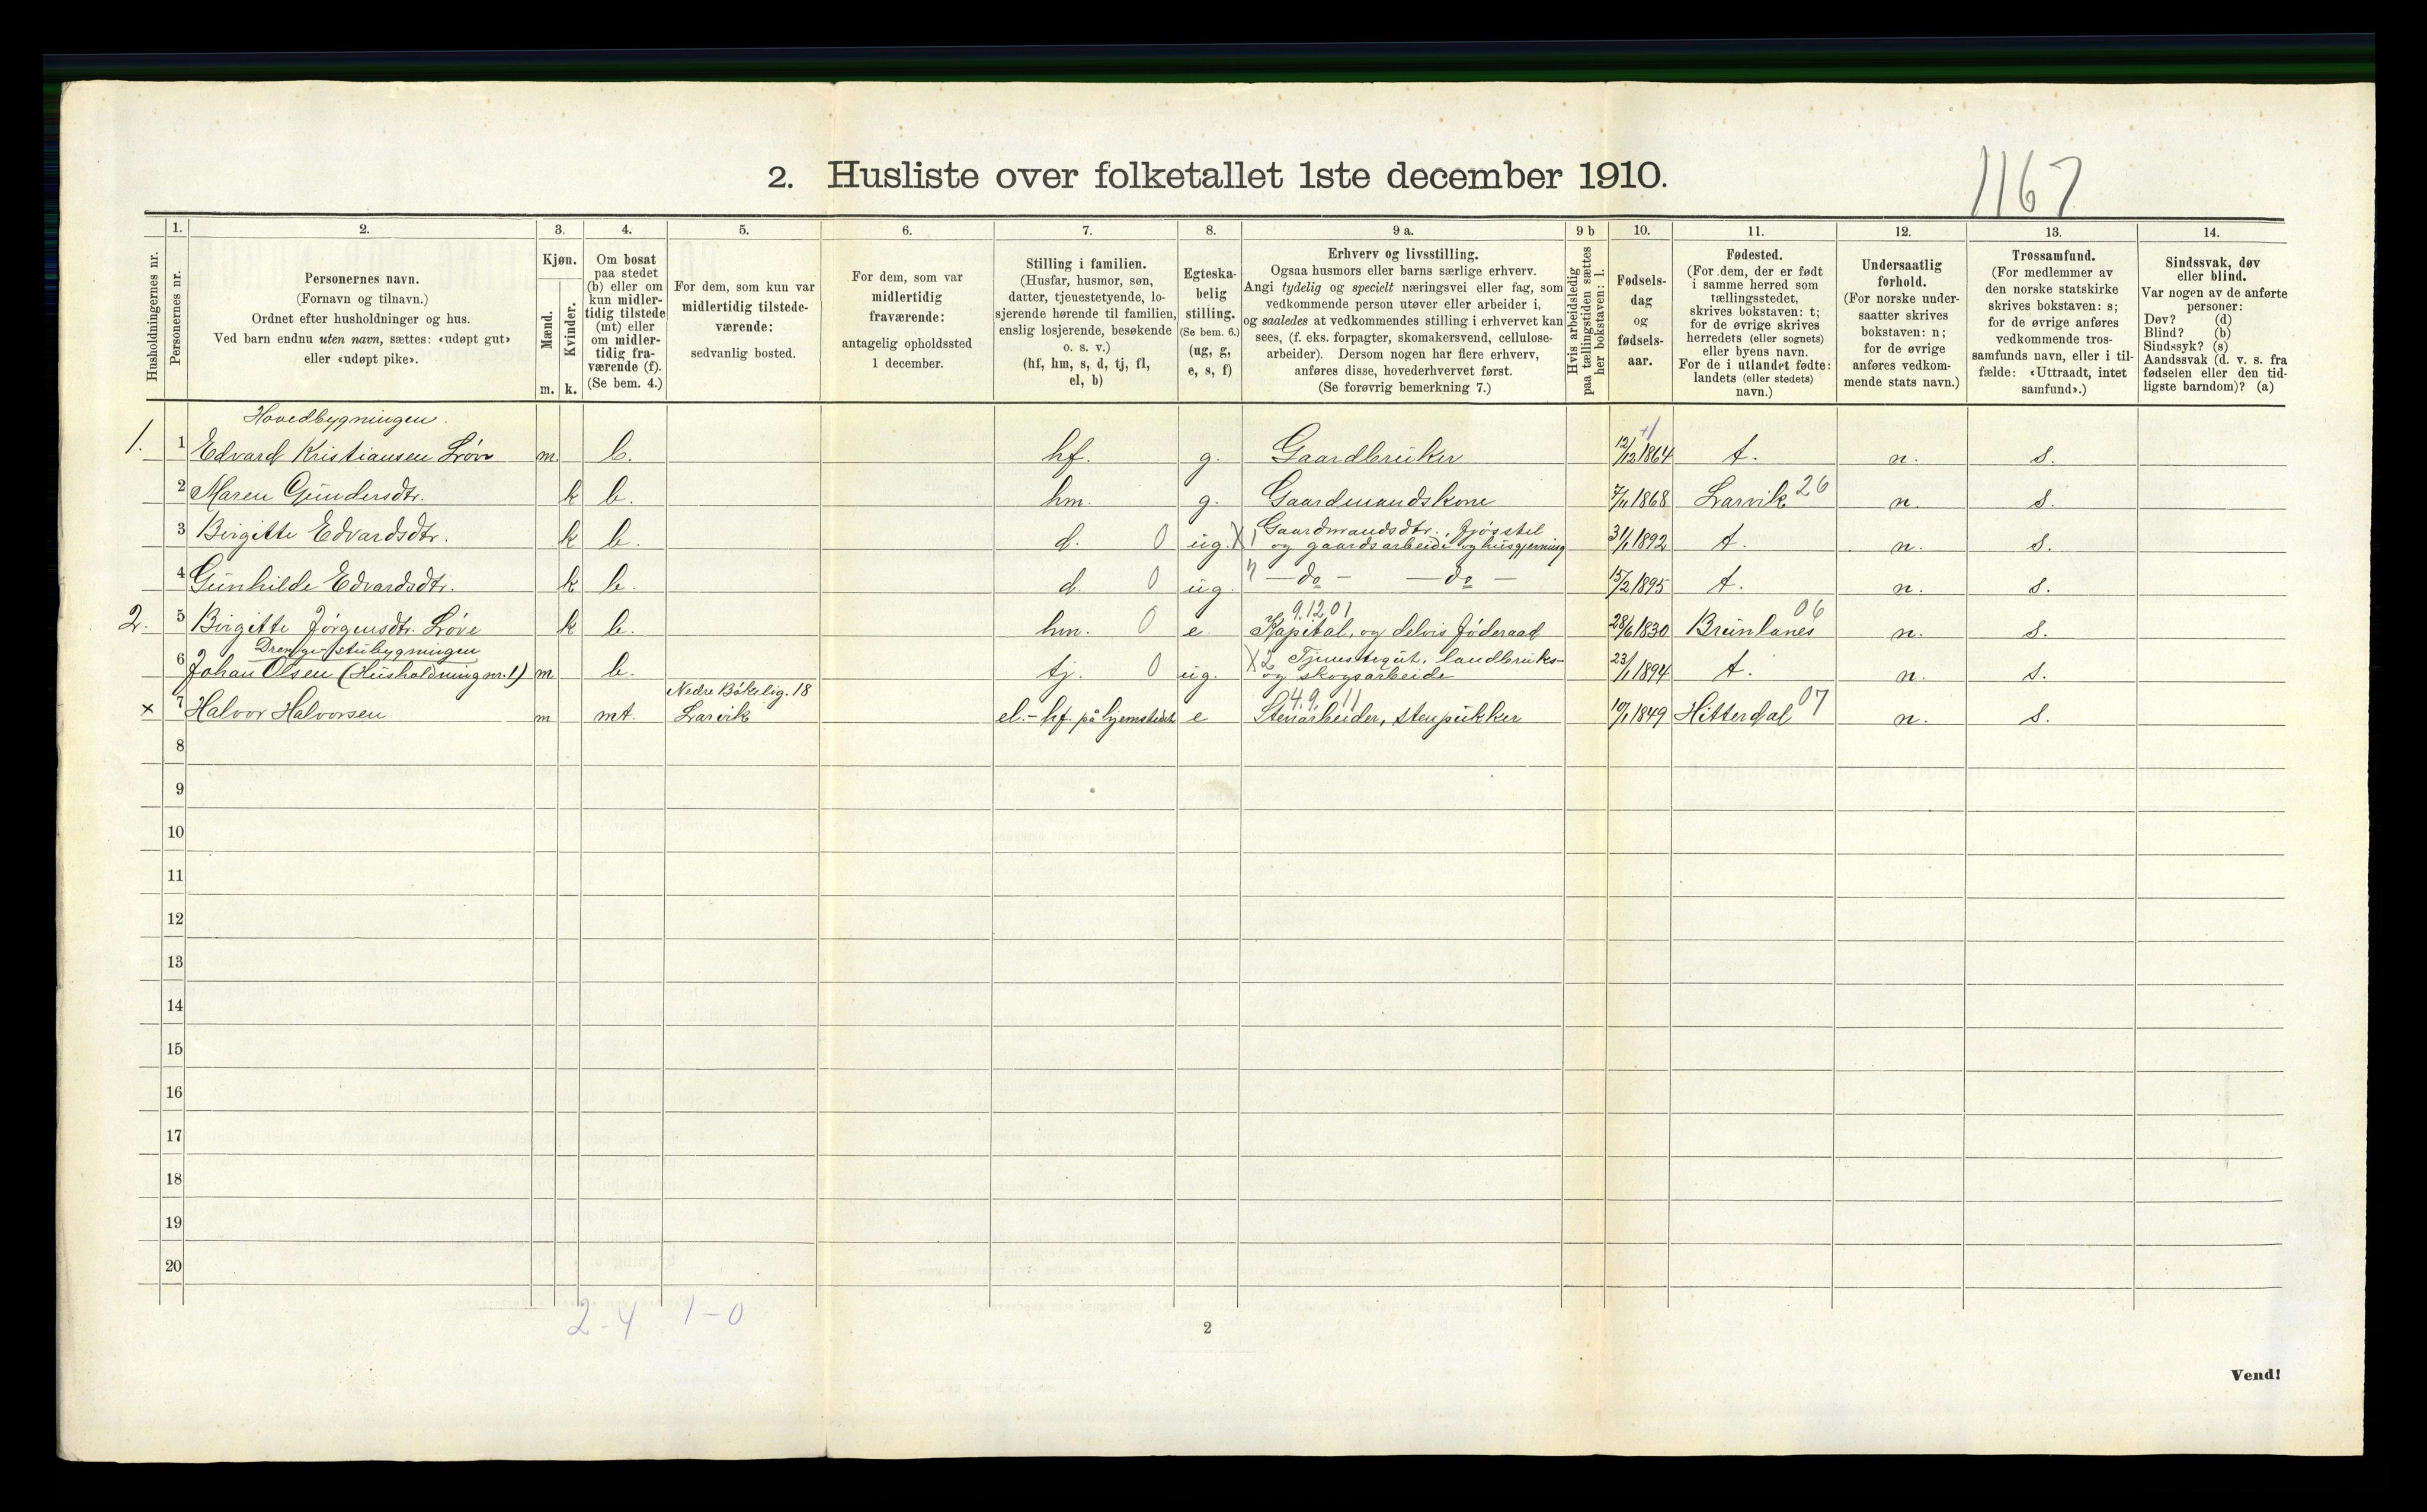 2. Husliste over folketallet 1ste december 1910.
1167
Husholdningernes nr.
1.
Personernes nr.
2.
Personernes navn.
(Fornavn og tilnavn.)
Ordnet efter husholdninger og hus.
Ved barn endnu uten navn, sættes: «udøpt gut»
eller «udøpt pike».
3.
Kjøn.
Mænd.
Kvinder.
m. k.
4.
Om bosat
paa stedet
(b) eller om
kun midler-
tidig tilstede
(mt) eller
om midler-
tidig fra-
værende (f).
(Se bem. 4.)
5.
For dem, som kun var
midlertidig tilstede-
værende:
sedvanlig bosted.
6.
For dem, som var
midlertidig
fraværende:
antagelig opholdssted
1 december.
7.
Stilling i familien.
(Husfar, husmor, søn,
datter, tjenestetyende, lo-
sjerende hørende til familien,
enslig losjerende, besøkende
o. s. v.)
(hf, hm, s, d, tj, fl,
el, b)
8.
Egteska-
belig
stilling.
(Se bem. 6.)
(ug, g,
e, s, f)
9 a.
Erhverv og livsstilling.
Ogsaa husmors eller barns særlige erhverv.
Angi tydelig og specielt næringsvei eller fag, som
vedkommende person utøver eller arbeider i,
og saaledes at vedkommendes stilling i erhvervet kan
sees, (f. eks. forpagter, skomakersvend, cellulose-
arbeider). Dersom nogen har flere erhverv,
anføres disse, hovederhvervet først.
(Se forøvrig bemerkning 7.)
9 b
Hvis arbeidsledig
paa tællingstiden sættes
her bokstaven: l.
10.
Fødsels-
dag
og
fødsels-
aar.
11.
Fødested.
(For dem, der er født
i samme herred som
tællingsstedet,
skrives bokstaven: t;
for de øvrige skrives
herredets (eller sognets)
eller byens navn.
For de i utlandet fødte:
landets (eller stedets)
navn.)
12.
Undersaatlig
forhold.
(For norske under-
saatter skrives
bokstaven: n;
for de øvrige
anføres vedkom-
mende stats navn.)
13.
Trossamfund.
(For medlemmer av
den norske statskirke
skrives bokstaven: s;
for de øvrige anføres
vedkommende tros-
samfunds navn, eller i til-
fælde: «Uttraadt, intet
samfund».)
14.
Sindssvak, døv
eller blind.
Var nogen av de anførte
personer:
Døv? (d)
Blind? (b)
Sindssyk? (s)
Aandssvak (d. v. s. fra
fødselen eller den tid-
ligste barndom)? (a)
Hovedbygningen.
1. 1 Edvard Kristiansen Løve m. b. hf. g. Gaardbruker 12/12 1864 t. n. s.
2 Maren Gundersdtr. k b. hm. g. Gaardmandskone 7/11 1868 Larvik 26 n. s.
3 Birgitte Edvardsdtr. k b. d. 0 ug. Gaardmandsdtr., fjøsstel
og gaardsarbeide og husgjerning 31/1 1892 t. n. s.
4 Gunhilde Edvardsdtr. k b. d. 0 ug. " — do — — do — 15/2 1895 t. n. s.
9.12.01 06
2. 5 Birgitte Jørgensdtr. Løve k b. hm. 0 e. Kapital, og delvis føderaad 28/6 1830 Brunlanes n. s.
Drengestubygningen
6 Johan Olsen (Husholdning nr. 1) m b. tj. 0 ug. X2 Tjenestegut, landbruks-
og skogsarbeide 23/1 1894 t. n. s.
Nedre Bøkelig. 18
04.9.11 07
x 7 Halvor Halvorsen m mt. Larvik el. - hf. på hjemstedet e Stenarbeider, stenpukker 10/1 1849 Hitterdal n. s.
8
9
10
11
12
13
14
15
16
17
18
19
20
2-4 1-0
2
Vend!